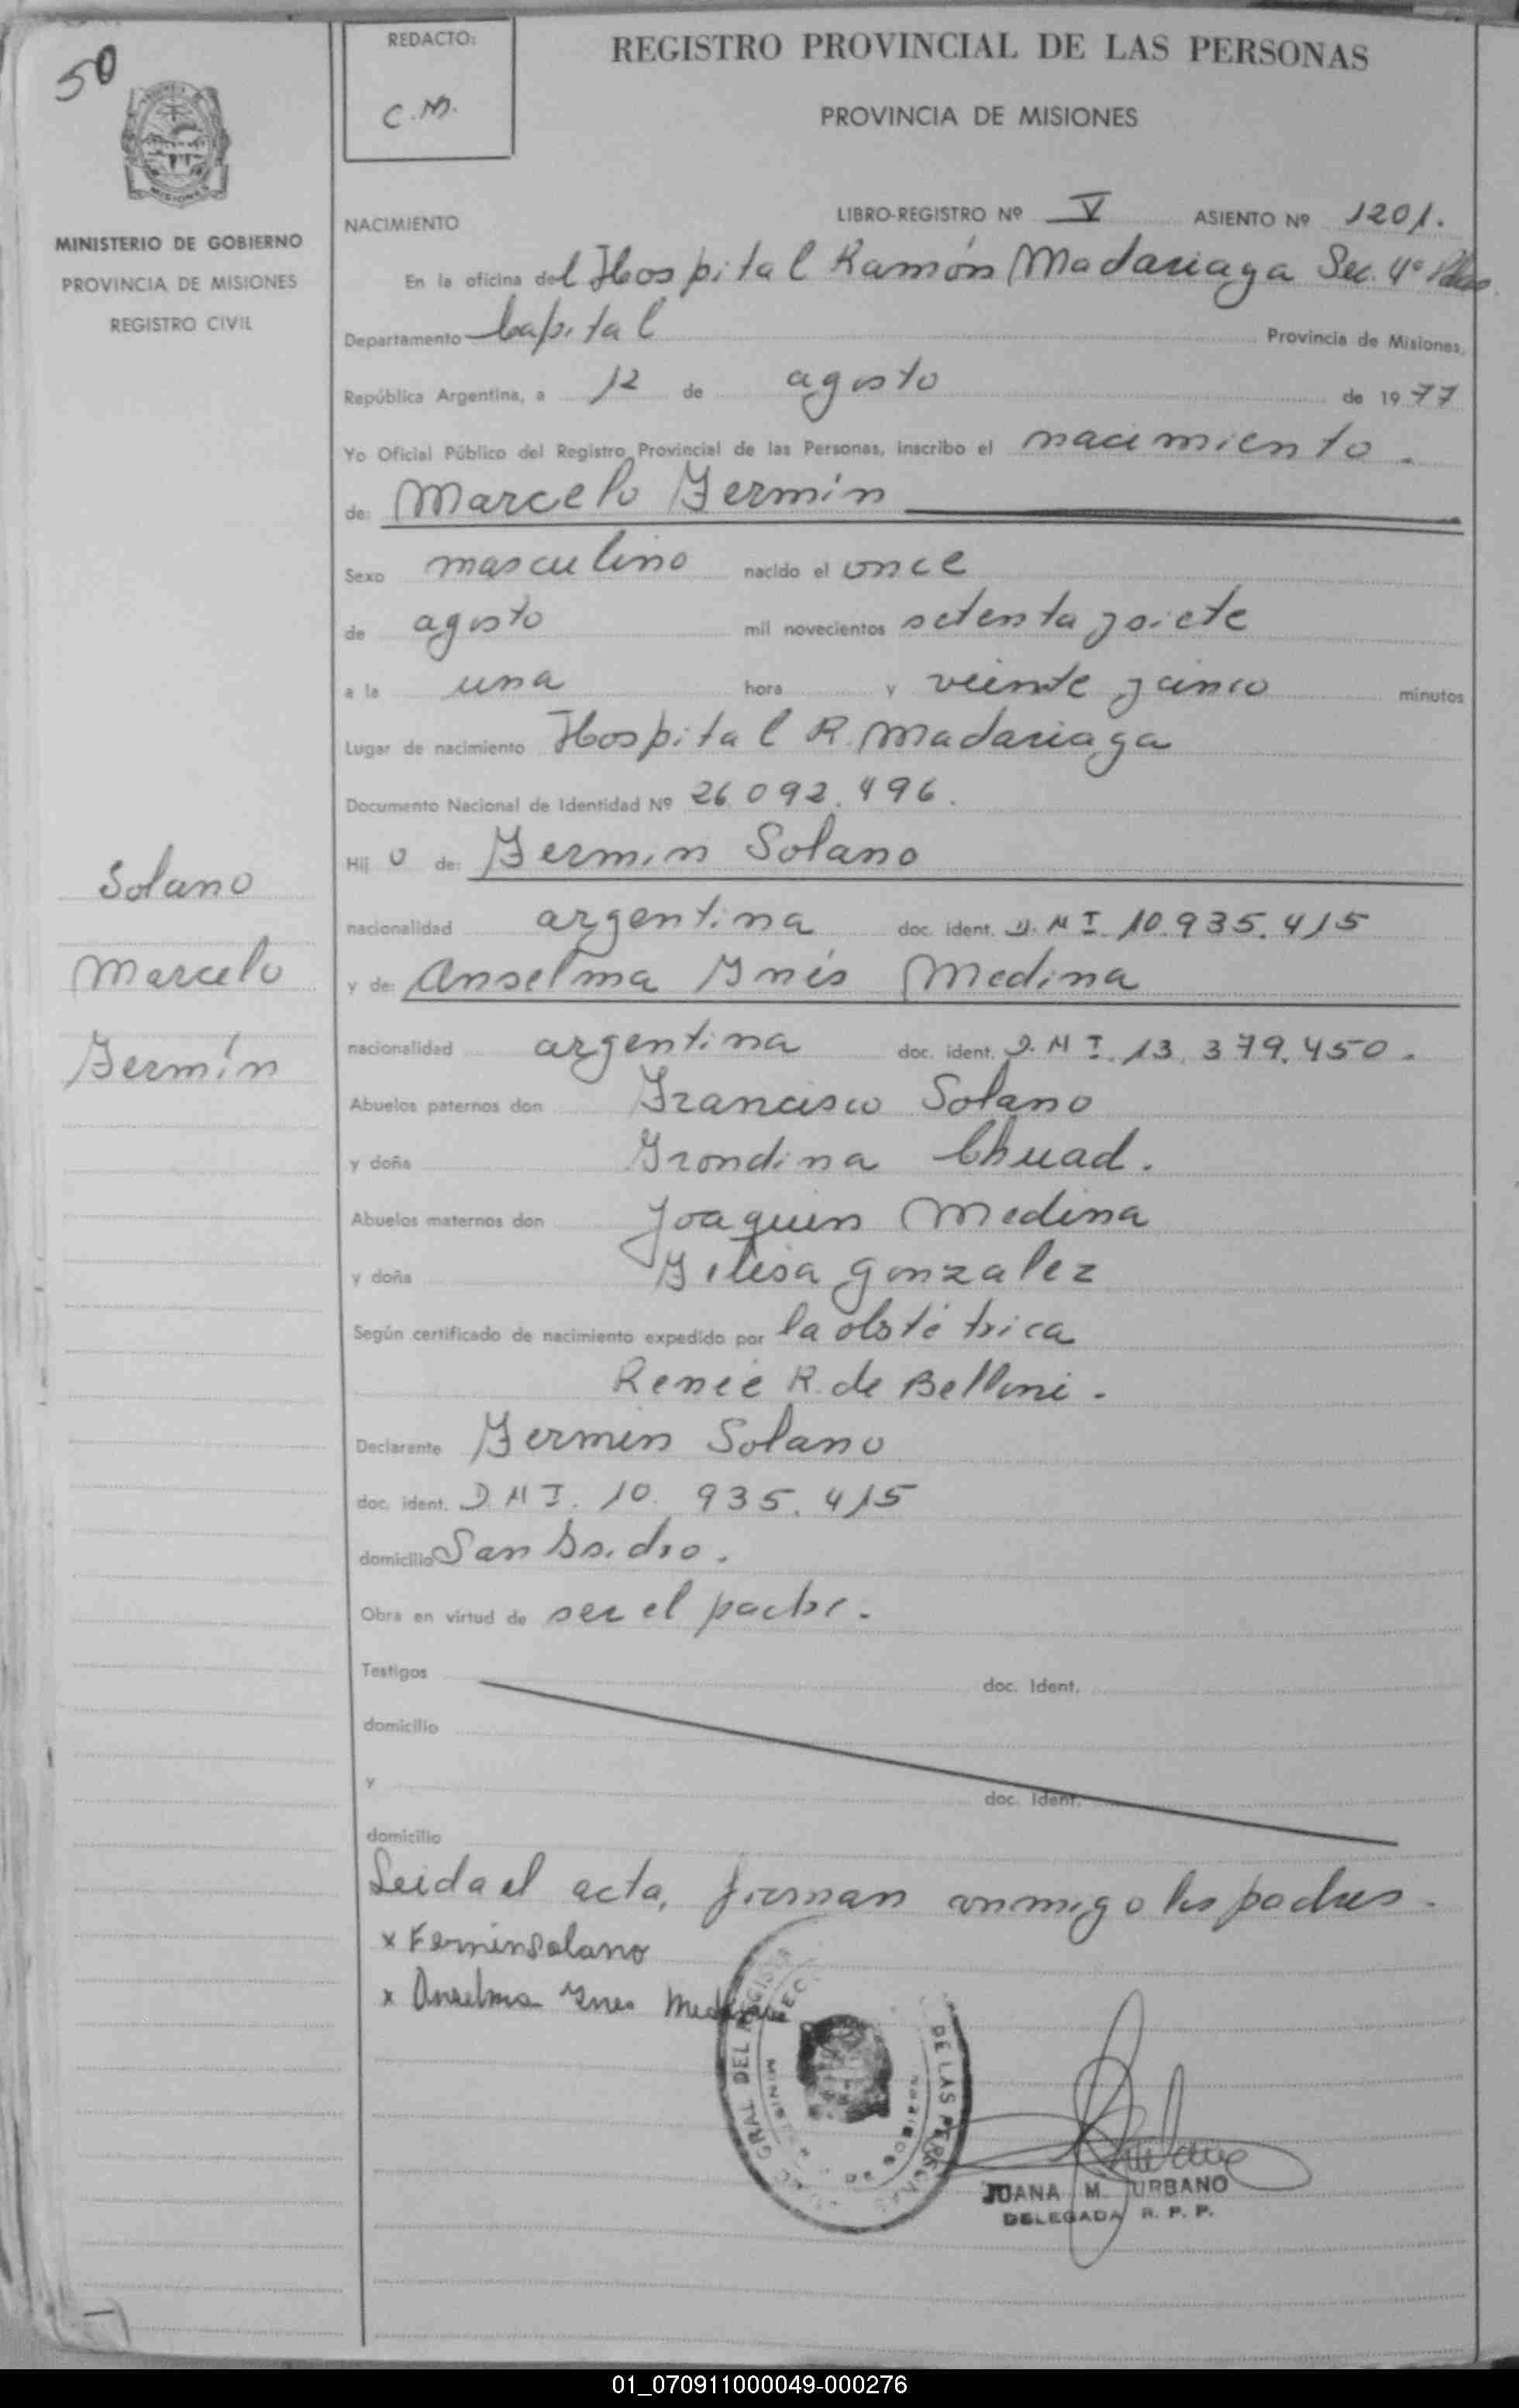 50
REDACTO:
C.M.
REGISTRO PROVINCIAL DE LAS PERSONAS
PROVINCIA DE MISIONES
MISIONES
MINISTERIO DE GOBIERNO
PROVINCIA DE MISIONES
REGISTRO CIVIL
NACIMIENTO
LIBRO-REGISTRO Nº V ASIENTO Nº 1201.
En la oficina del Hospital Ramón Madariaga Sec. 4º
Departamento Capital Provincia de Misiones,
República Argentina, a 12 de agosto de 1977
Yo Oficial Público del Registro Provincial de las Personas, inscribo el nacimiento.
de: Marcelo Fermín
Sexo masculino nacido el once
de agosto mil novecientos setenta y siete
a la una hora y veinte y cinco minutos
Lugar de nacimiento Hospital R. Madariaga
Documento Nacional de Identidad Nº 26.092.496.
Hij o de: Fermin Solano
nacionalidad argentina doc. ident. D.N I. 10.935.415
y de: Anselma Ynés Medina
nacionalidad argentina doc. ident. D.N I. 13.379.450.
Solano
Marcelo
Fermín
Abuelos paternos don Francisco Solano
y doña Frondina Chuad.
Abuelos maternos don Joaquin Medina
y doña Filisa Gonzalez
Según certificado de nacimiento expedido por la obstétrica
Renée R. de Belloni.
Declarante Fermin Solano
doc. ident. D.N I. 10.935.415
domicilio San Isidro.
Obra en virtud de ser el padre.
Testigos doc. Ident.
domicilio
y doc. Ident.
domicilio
Leida el acta, firman conmigo los padres.
x Fermin Solano
x Anselma Ynes Medina
GRAL DEL REGIST DE LAS PERSONAS
JUANA M. URBANO
DELEGADA R. P. P.
01_070911000049-000276